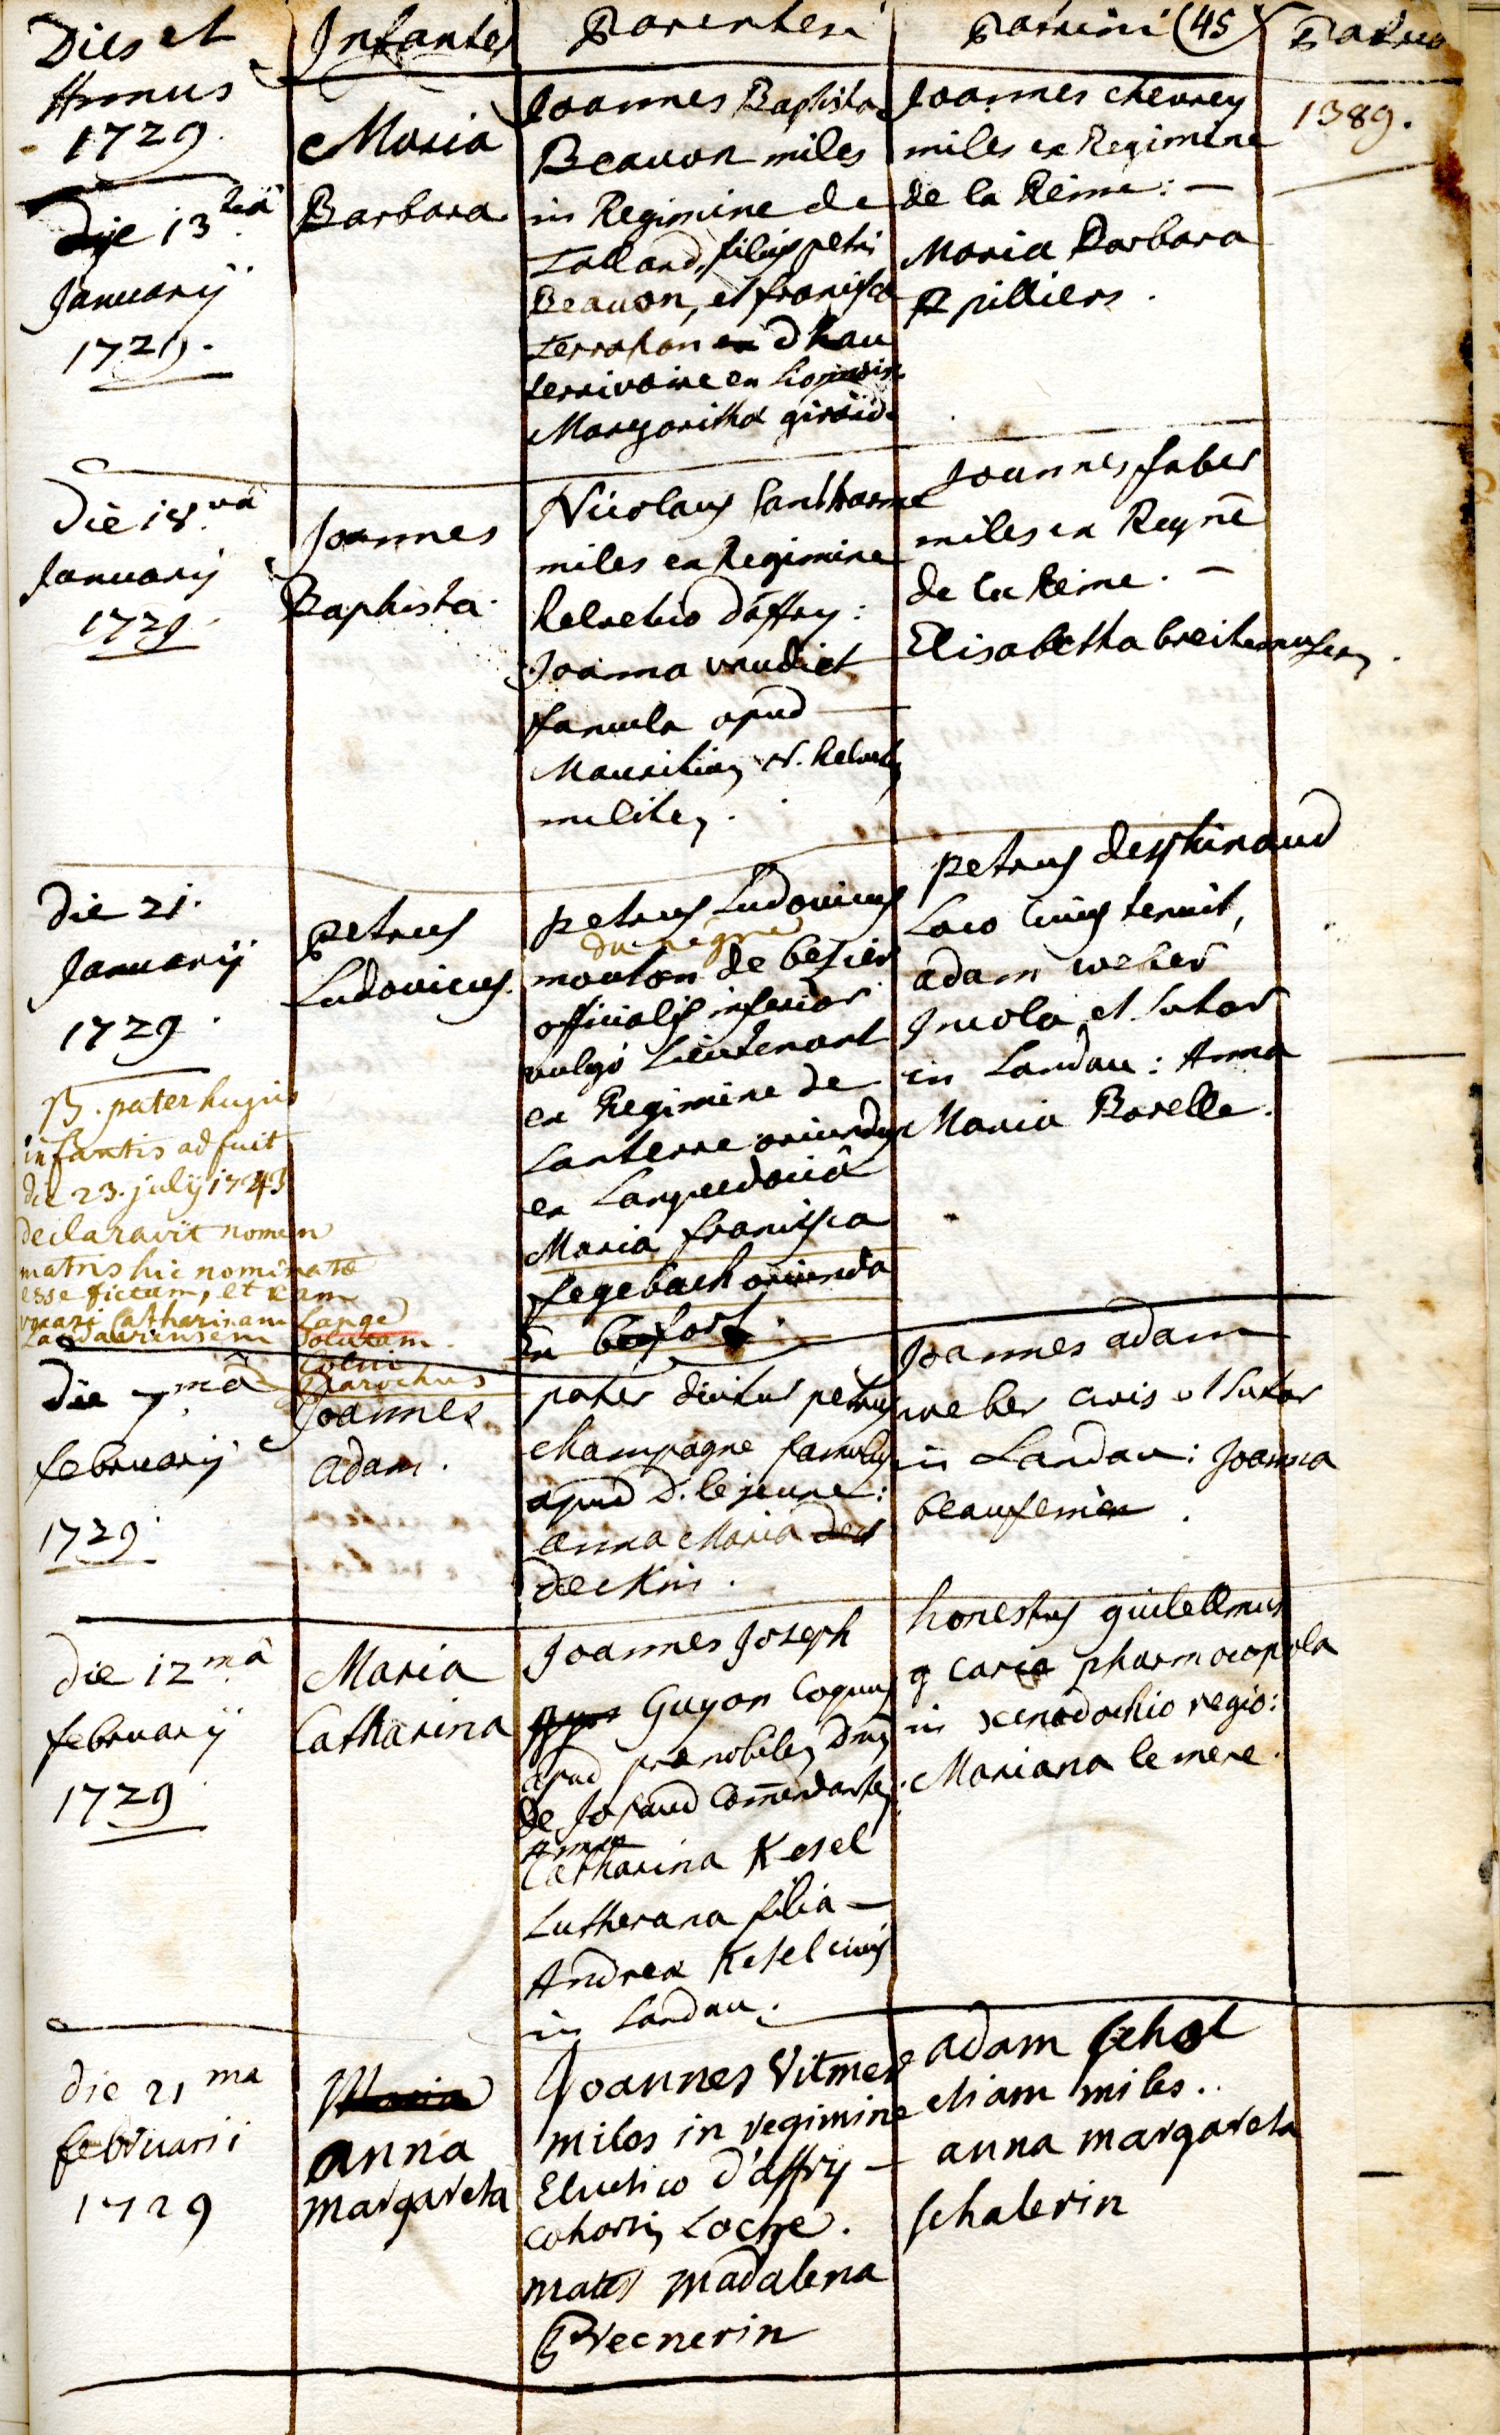 Dies et
Annus
1729.
Infantes
Parentes
Patrini (45)
1389.
Die 13tia
Januarij
1729.
Maria
Barbara
Joannes Baptista
Beauon miles
in Regimine de
Tallard, filius petri
Beauon, et francisca
en
Margaritha
Joannes chevrey
miles ex Regimine
de la Reine: —
Maria Barbara
Spilliers.
Die 18va
Januarij
1729.
Joannes
Baptista.
Nicolaus
miles ex Regimine
helvetico d'affry:
Joanna vrudiet
famula apud —
N.
Joannes faber
miles ex
de la Reine. —
Elisabetha
Die 21.
Januarij
1729.
petrus
Ludovicus.
petrus Ludovicus
du negre
mouton de besier
officialis inferior
vulgo Lieutenant
ex Regimine de
Lanterre oriundus
ex Languedocia
Maria francisca
fegebach oriunda
in befort.
petrus
Loco cuius tenuit,
adam weber
Incola et sutor
in Landau: Anna
Maria Borelle.
pater hujus
infantis adfuit
die 23. julij 1743
declaravit nomen
matris hic nominatæ
esse fictum, et eam
vocari Catharinam Lange
Landaviensem solutam.
Parochus
Die 7mâ
february
1729.
Joannes
adam.
pater dicitur petrus
champagne famulus
apud D. le jeune:
anna Maria
deckin.
Joannes adam
weber civis et sutor
in Landau: Joanna
Die 12mâ
februarij
1729.
Maria
Catharina
Joannes Joseph
Guyon Coquus
apud prænobilem Dnum
de
Anna
Catharina Kesel
Lutherana filia —
Andreæ Kesel civis
in Landau.
honestus guilellmus
pharmocopola
in xenodochio regio:
Mariana le mere.
die 21ma
februarii
1729
Maria
anna
margareta
Joannes Vitmer
miles in regimine
Elvetico d'affry —
cohortis Loche.
mater madalena
Brecnerin
adam schol
etiam miles..
anna margareta
schalerin